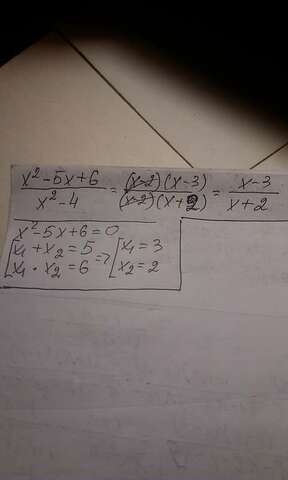 (x²-5x+6)/(x²-4) = ((x-2)(x-3))/((x-2)(x+2)) = (x-3)/(x+2)
x²-5x+6=0
[x₁+x₂=5 => [x₁=3
[x₁·x₂=6 [x₂=2